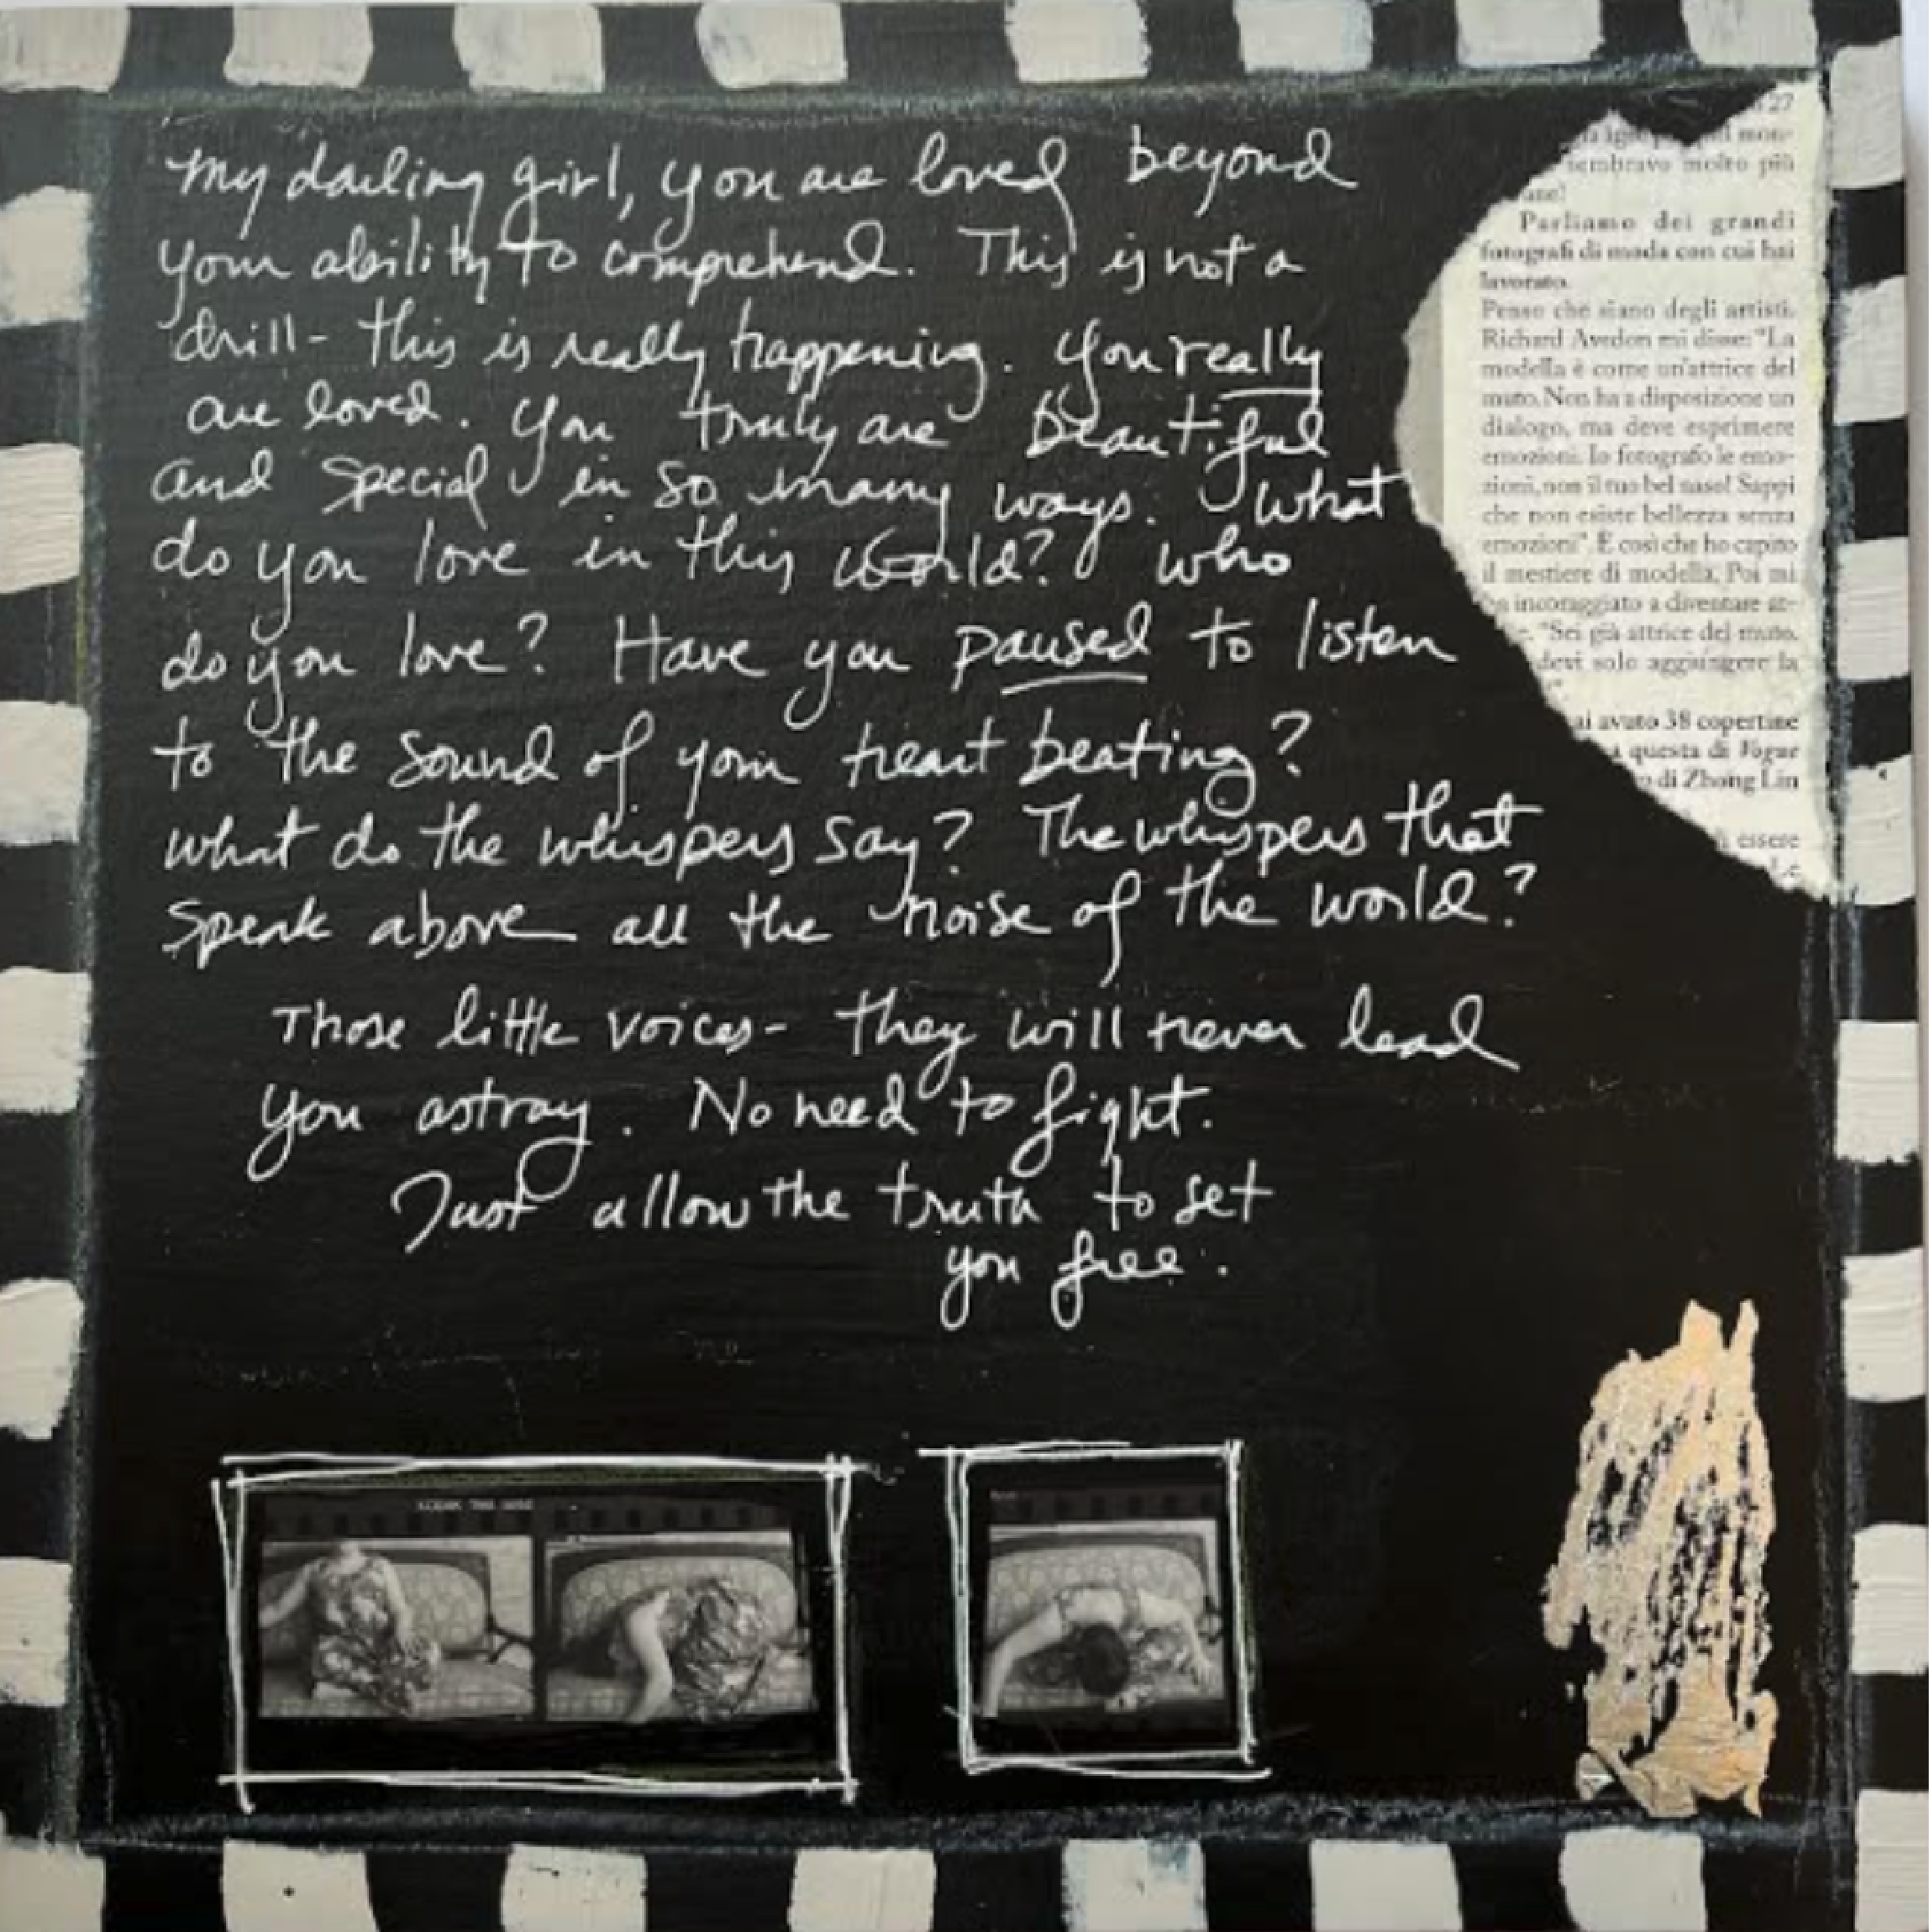 My darling girl, you are loved beyond
your ability to comprehend. This is not a
drill - this is really happening. You really
are loved. You truly are beautiful
and special in so many ways. What
do you love in this world? who
do you love? Have you paused to listen
to the sound of your heart beating?
what do the whispers say? The whispers that
speak above all the noise of the world?
Those little voices - they will never lead
you astray. No need to fight.
Just allow the truth to set
you free.
27
mon-
sembravo molto più
Parliamo dei grandi
fotografi di moda con cui hai
lavorato.
Penso che siano degli artisti.
Richard Avedon mi disse: "La
modella è come un'attrice del
muto. Non ha a disposizione un
dialogo, ma deve esprimere
emozioni. Io fotografo le emo-
zioni, non il tuo bel naso! Sappi
che non esiste bellezza senza
emozioni". È così che ho capito
il mestiere di modella. Poi mi
incoraggiato a diventare at-
"Sei già attrice del muto,
devi solo aggiungere la
avuto 38 copertine
questa di Vogue
di Zhong Lin
essere
KODAK